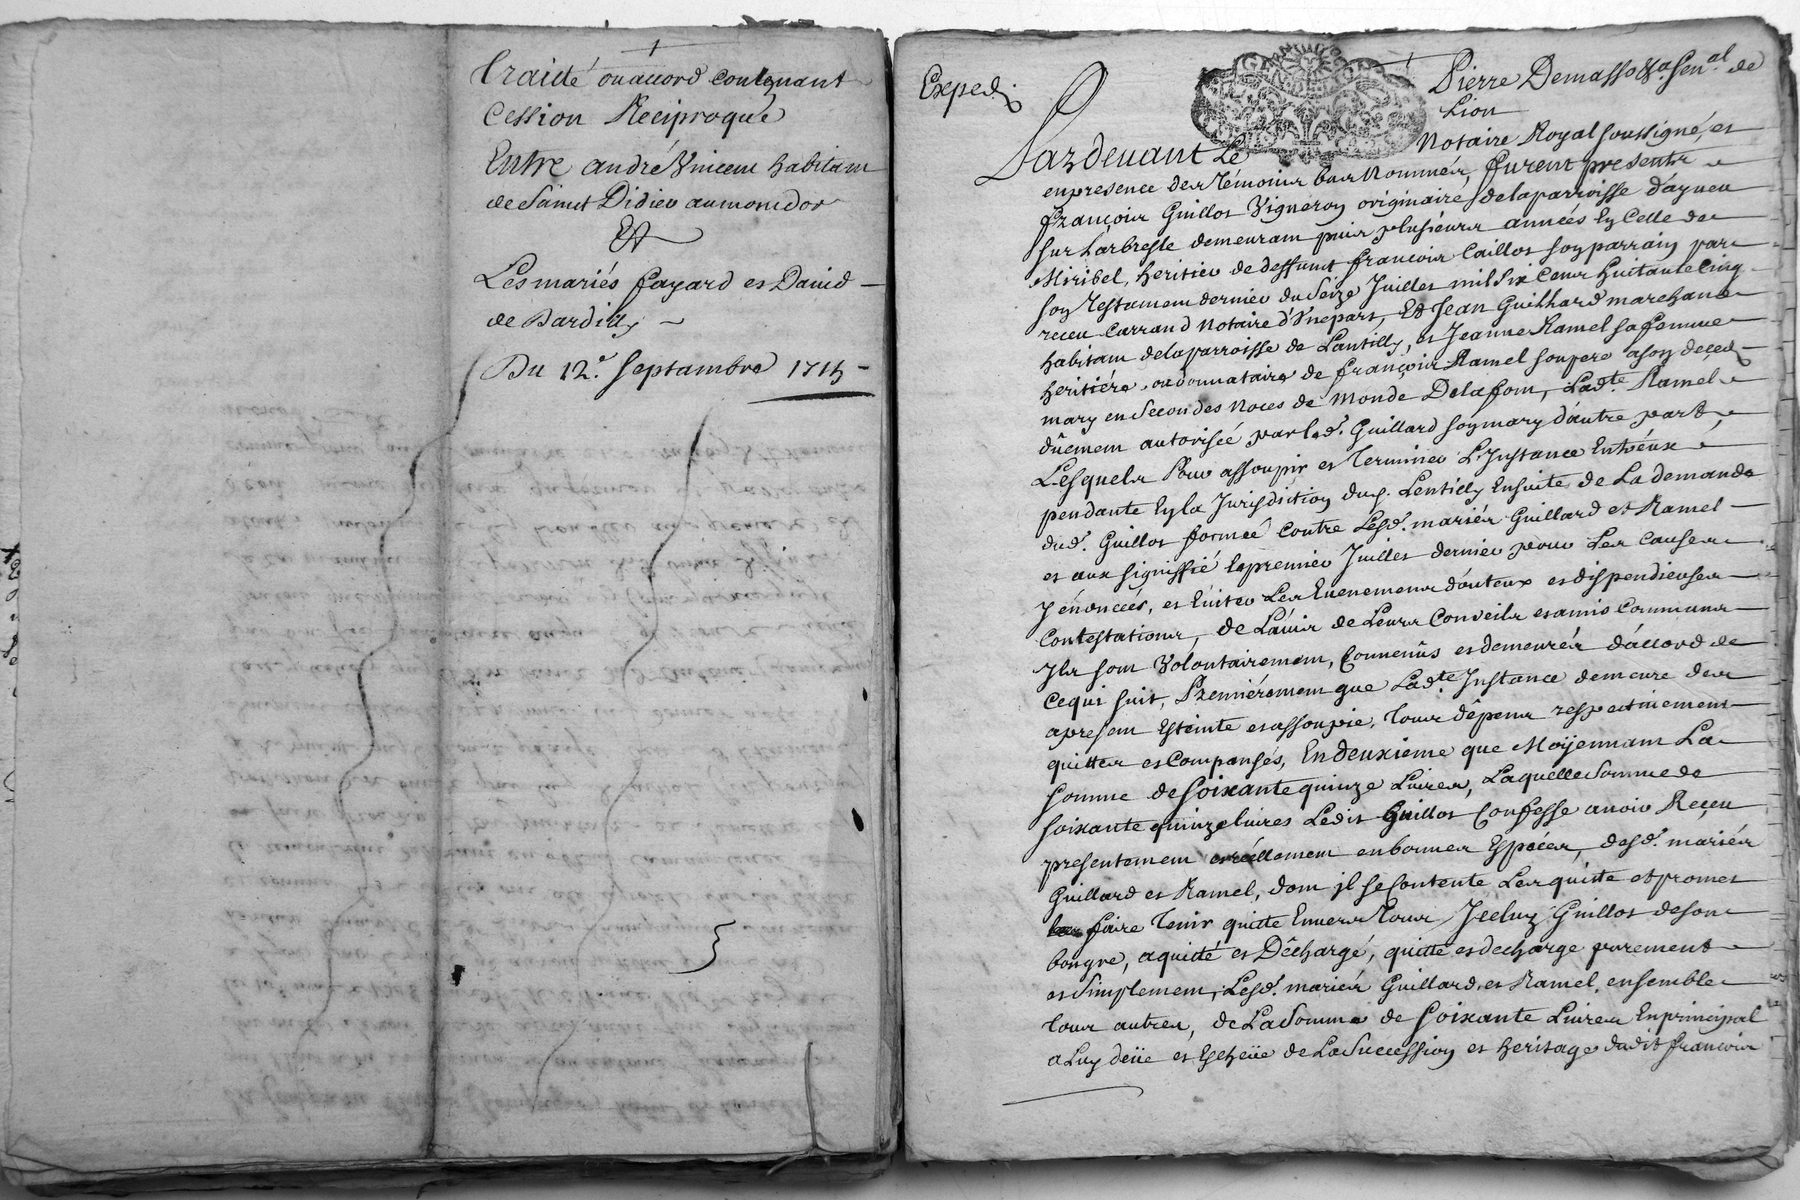 Traité ou accord contenant
Cession Reciproque
Entre andré Vincent habitant
de Saint Didier au mont d'or
Et
Les mariés fayard et David
de Dardilly
Du 12.e Septambre 1715
Exped.
Pierre Demasso &a Sen.al de
Lion
Pardevant Le Notaire Royal soussigné, et
en presence des témoins bas Nommés, furent presents
François Guillot Vigneron originaire de la parroisse d'ayueu
sur Larbresle demeurant puis plusieurs années En Celle de
Miribel, heritier de deffunt françois Caillot son parrain par
son testament dernier du Seize Juillet mil Six Cens huitante Cinq
receu Carrand Notaire d'Vnepart, Et Jean Guilhard marchand
habitant de la parroisse de Lantilly, et Jeanne Ramel sa femme
heritiére ou donnataire de françois Ramel son pere a son deced
mary en Secondes Noces de Monde Delafont, Lad.te Ramel
dûement autorisée par led. Guillard son mary d'autre part
Lesquels Pour assoupir et terminer L'Instance Entr'eux
pendante En la Jurisdiction dud. Lentilly Ensuite de La demande
dud. Guillot formée Contre Lesd. mariés Guillard et Ramel
et aux signiffié le premier Juillet dernier pour Les Causes
y énoncées, et Euiter Les Euenemens douteux et dispendieuses
Contestations, de L'auis de Leurs Conseils et amis Communs
Ils sont Volontairement, Conuenûs et demeurés d'accord de
Ce qui suit, Premiérement que Lad.te Instance demeure des
apresent Esteinte et assoupie, tous dépens respectiuement
quittes et Compansés, En deuxieme que Moÿennant La
somme de Soixante quinze Liures, Laquelle Somme de
soixante quinze liures Ledit Guillot Confesse auoir Reçeu
presentement et réellement en bonnes Espéces, desd. mariés
Guillard et Ramel, dont il se Contente Les quitte et promet
faire tenir quitte Enuers tous Jceluy Guillot de son
bongre, a quitté et Déchargé, quitte et decharge purement
et Simplement, Lesd. mariés Guillard, et Ramel, ensemble
tous autres, de La Somme de Soixante Liures En principal
a Luy deüe et Escheüe de La Succession et heritage dudit françois